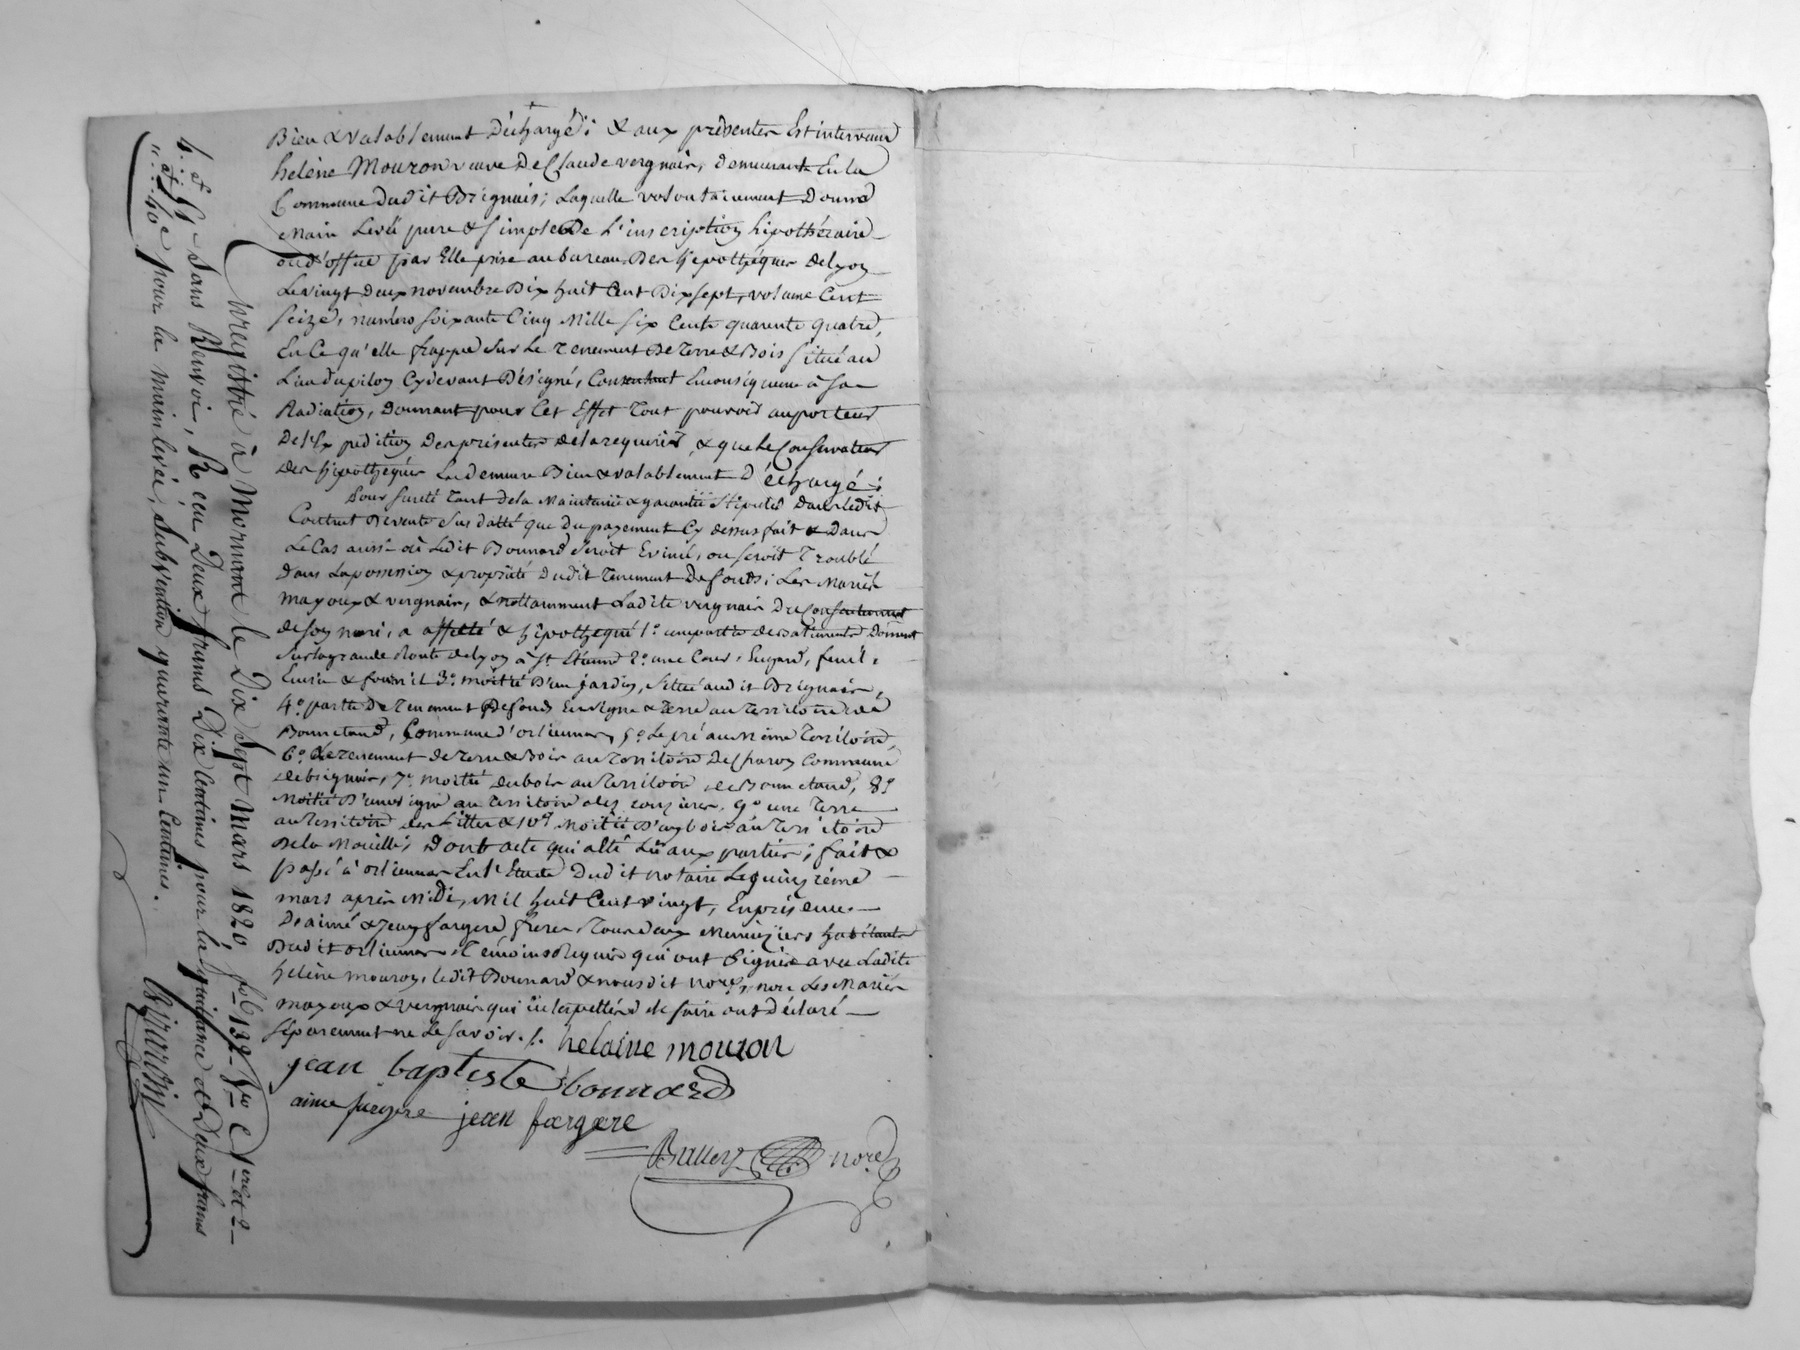 Bien & valablement Déchargé; & aux présentes Est intervenue
helène Mouron veuve De Claude vergnais, demeurante En la
Commune dudit Brignais; Laquelle volontairement Donne
Main Levée pure & simple De l'inscription hipothécaire
ou d'office par Elle prise au bureau Des hipothèques de Lyon
Le vingt deux novembre Dix huit Cent Dix sept, volume Cent
seize, numéro soixante Cinq Mille six Cents quarente quatre,
En Ce qu'elle frappe sur Le Tenement De Terre & Bois situé au
Lieu du pilon Cydevant Désigné, Consentant En conséquence à sa
Radiation, Donnant pour Cet Effet Tout pouvoir au porteur
De l'Expédition Des présentes de la requérir, & que Le Conservateur
Des hipothèques En demeure Bien & valablement Déchargé;
Pour sureté Tant de la Maintenue & garantie stipulée Dans ledit
Contrat De vente sus datté que Du payement Cy dessus fait & Dans
Le Cas aussi où Ledit Bonnard seroit Evincé, ou seroit Troublé
Dans La possession & propriété Dudit Tenement De fonds; Les Mariés
mayoux & vergnais, & nottamment Ladite vergnais Du Consentement
de son mari, a affecté & hipothequé 1.° une partie de Batiments Donnant
sur la grande Route de Lyon à St. Etienne 2.° une Cour, Engard, feuil-
& fournil 3.° moitié D'un jardin, situé audit Brignais,
4.° partie De Tenement De fonds En vigne & Terre au Territoire de
Bonnetand, Commune d'orlienas, 5.° Le pré au même Territoire,
6.° Le Tenement de Terre & Bois au Territoire De Charon Commune
de brignais, 7.° moitié du bois au Territoire de Bonnetand, 8.°
Moitié D'une vigne au Territoire des 9.° une Terre
au Territoire des & 10.° Moitié D'un bois au Territoire
De la Mouille; Dont acte qui a été Lu aux parties; fait &
passé à orlienas En l'Etude Dudit notaire Le quinzième
mars après Midi, Mil huit Cent vingt, En présence
D'aimé & Jean fargere frères, Tous deux Menuisiers habitants
Dudit orlienas Témoins Requis qui ont Signés avec Ladite
helène mouron, ledit Bonnard & nousdit no.re, non Les Mariés
mayoux & vergnais qui interpellés de faire ont déclaré
séparement ne Le savoir./.
helaine mouron
jean baptiste bonnard
aime fargere jean fargere
no.re
Enregistré à Mornant le Dix Sept Mars 1820, f.° 132 V.° C. 1ere et 2
4. et 5. Sans Renvoi, Reçu Deux francs Dix Centimes pour la quittance et Deux francs
et 40 c pour la main levée, Subvention quarante un Centimes.